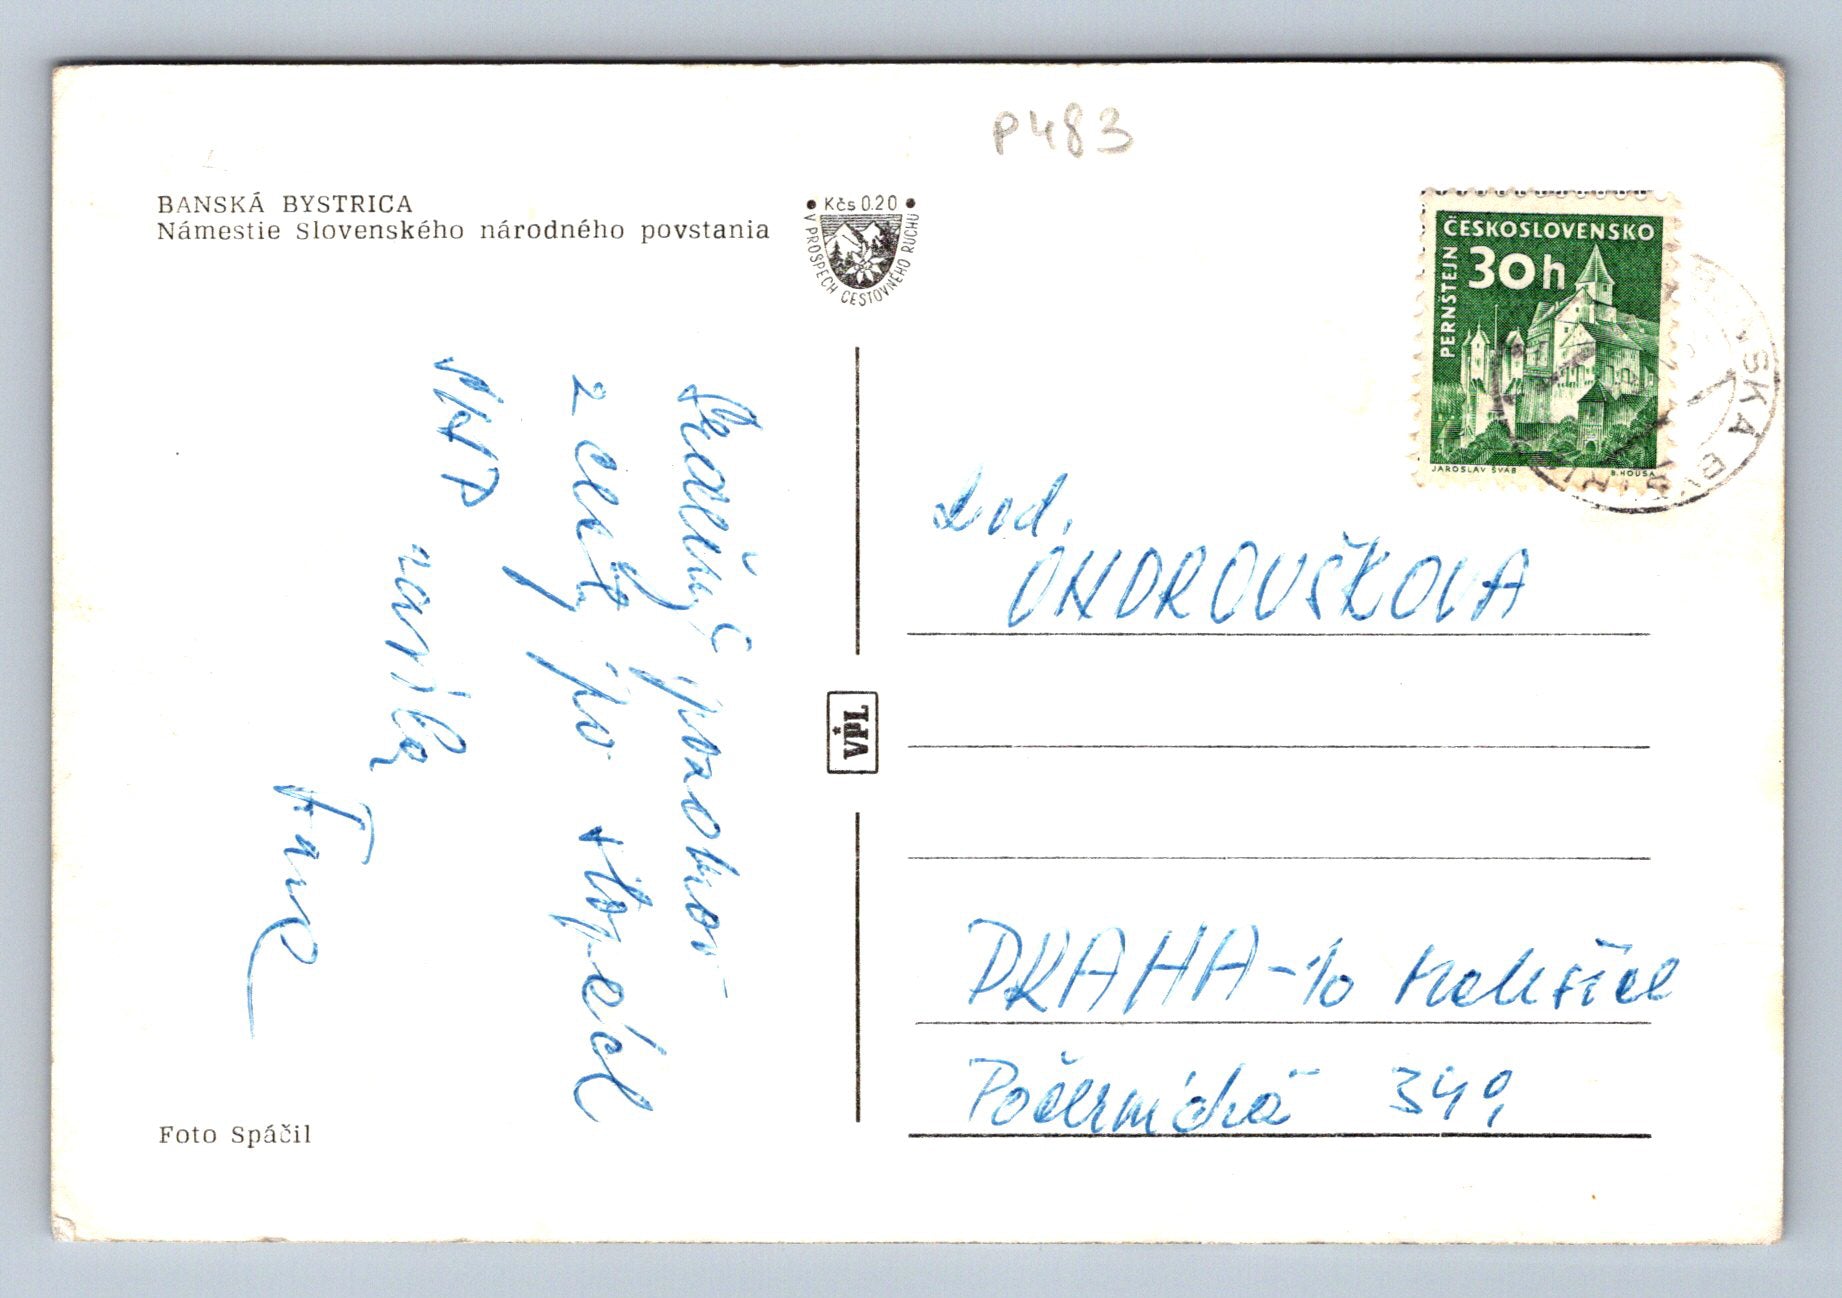 P483
BANSKÁ BYSTRICA
Námestie Slovenského národného povstania
Kčs 0.20
V PROSPECH CESTOVNÉHO RUCHU
ČESKOSLOVENSKO
30h
PERNŠTEJN
JAROSLAV ŠVÁB
B. HOUSA
SKÁ BYSTRI
Srdečný pozdrav
z cesty po stopách
SNP
posílá
VPL
ONDROUŠKOVA
PRAHA-10 Malešice
Počernická 349
Foto Spáčil